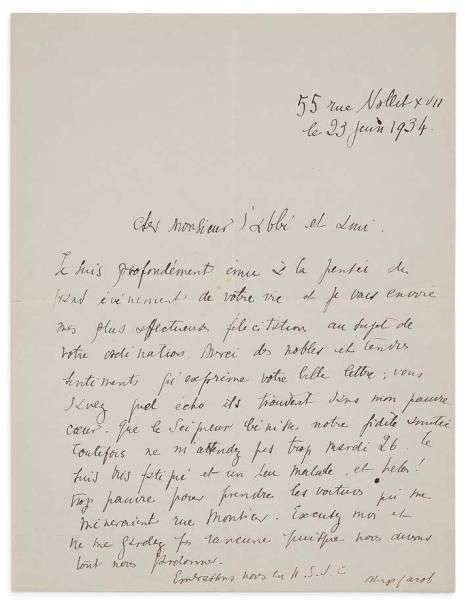 55 rue Nollet XVII
le 23 juin 1934.
Cher Monsieur l'Abbé et ami.
Je suis profondément ému à la pensée du
grand événement de votre vie et je vous envoie
mes plus affectueuses félicitations au sujet de
votre ordination. Merci des nobles et tendres
sentiments qu'exprime votre belle lettre ; vous
savez quel écho ils trouvent dans mon pauvre
cœur. Que le Seigneur bénisse notre fidèle amitié
Toutefois ne m'attendez pas trop mardi 26. Je
suis très fatigué et un peu malade, et hélas !
trop pauvre pour prendre les voitures qui me
mèneraient rue Montier. Excusez moi et
ne me gardez pas rancune puisque nous devons
tout nous pardonner.
Embrassons nous en N.S.J.C
Max Jacob